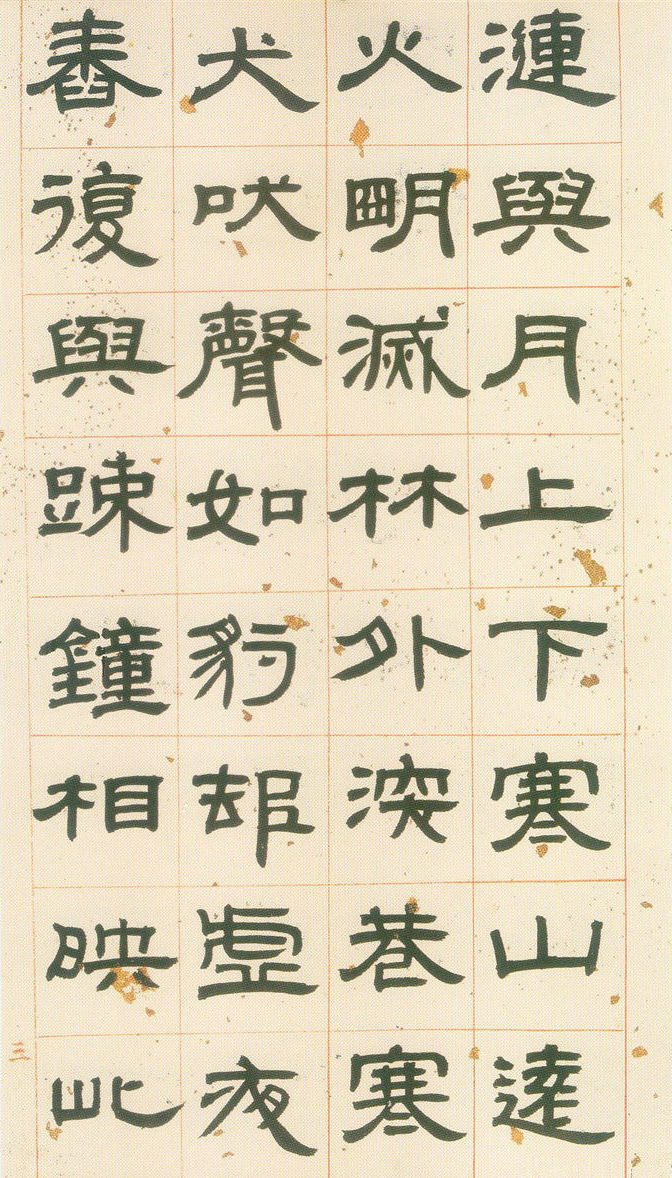 漣與月上下寒山遠
火朙滅林外深巷寒
犬吠聲如豹邨虛夜
舂復與疎鐘相映此
三